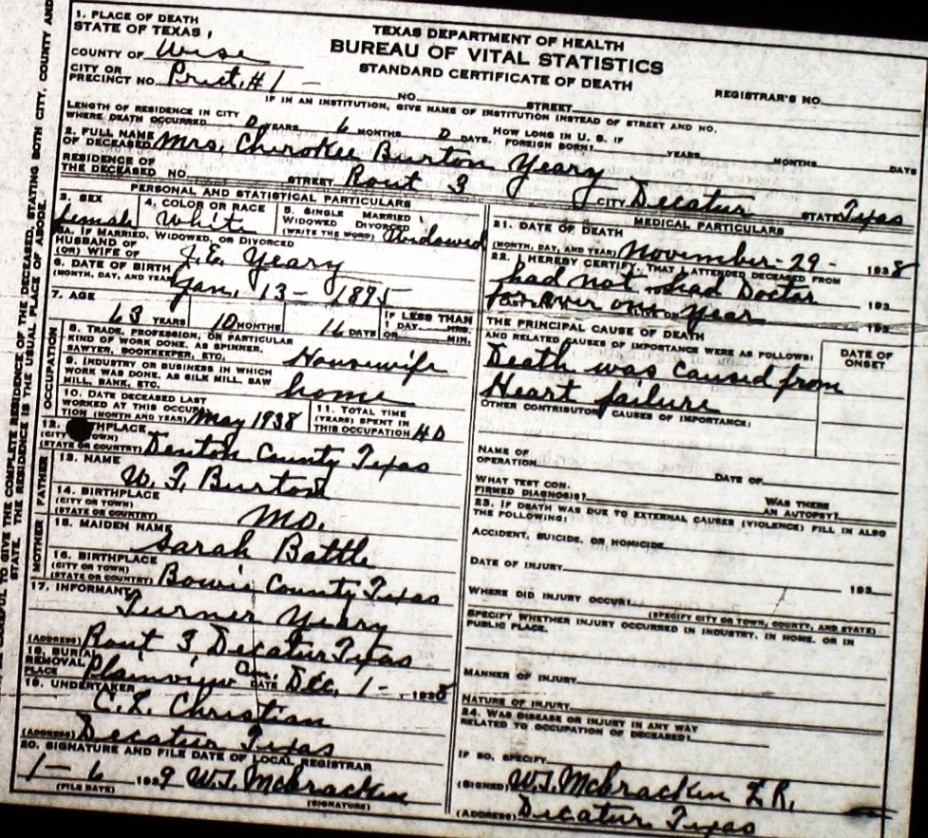 1. PLACE OF DEATH
STATE OF TEXAS
COUNTY OF Wise
CITY OR PRECINCT NO. Prect. #1 -
TEXAS DEPARTMENT OF HEALTH
BUREAU OF VITAL STATISTICS
STANDARD CERTIFICATE OF DEATH
REGISTRAR'S NO.
NO. STREET
IF IN AN INSTITUTION, GIVE NAME OF INSTITUTION INSTEAD OF STREET AND NO.
LENGTH OF RESIDENCE IN CITY WHERE DEATH OCCURRED 0 YEARS 6 MONTHS 0 DAYS. HOW LONG IN U. S. IF FOREIGN BORN? YEARS MONTHS DAYS
2. FULL NAME OF DECEASED Mrs. Cherokee Burton Yeary
RESIDENCE OF THE DECEASED NO. STREET Rout 3 CITY Decatur STATE Texas
PERSONAL AND STATISTICAL PARTICULARS
3. SEX female
4. COLOR OR RACE White
5. SINGLE MARRIED WIDOWED DIVORCED (WRITE THE WORD) Widowed
5A. IF MARRIED, WIDOWED, OR DIVORCED
HUSBAND OF (OR) WIFE OF J.E. Yeary
6. DATE OF BIRTH (MONTH, DAY, AND YEAR) Jan. 13 - 1895
7. AGE
63 YEARS 10 MONTHS 16 DAYS IF LESS THAN 1 DAY HRS. OR MIN.
OCCUPATION
8. TRADE, PROFESSION, OR PARTICULAR KIND OF WORK DONE, AS SPINNER, SAWYER, BOOKKEEPER, ETC. Housewife
9. INDUSTRY OR BUSINESS IN WHICH WORK WAS DONE, AS SILK MILL, SAW MILL, BANK, ETC. home
10. DATE DECEASED LAST WORKED AT THIS OCCUPATION (MONTH AND YEAR) May 1938
11. TOTAL TIME (YEARS) SPENT IN THIS OCCUPATION 40
12. BIRTHPLACE (CITY OR TOWN) (STATE OR COUNTRY) Denton County Texas
FATHER
13. NAME W. T. Burton
14. BIRTHPLACE (CITY OR TOWN) (STATE OR COUNTRY) Mo.
MOTHER
15. MAIDEN NAME Sarah Battle
16. BIRTHPLACE (CITY OR TOWN) (STATE OR COUNTRY) Bowie County Texas
17. INFORMANT Turner Yeary
(ADDRESS) Rout 3 Decatur Texas
18. BURIAL REMOVAL
PLACE Plainview Cem. DATE Dec. 1 - , 1938
19. UNDERTAKER C.L. Christian
(ADDRESS) Decatur Texas
20. SIGNATURE AND FILE DATE OF LOCAL REGISTRAR
1 - 6 1939 W.T. McCracken
(FILE DATE) (SIGNATURE)
MEDICAL PARTICULARS
21. DATE OF DEATH
(MONTH, DAY, AND YEAR) November - 29 - 1938
22. I HEREBY CERTIFY, THAT I ATTENDED DECEASED FROM
had not had Doctor 193
for over one year 193
THE PRINCIPAL CAUSE OF DEATH
AND RELATED CAUSES OF IMPORTANCE WERE AS FOLLOWS:
DATE OF ONSET
Death was caused from
Heart failure
OTHER CONTRIBUTORY CAUSES OF IMPORTANCE:
NAME OF OPERATION DATE OF
WHAT TEST CONFIRMED DIAGNOSIS? WAS THERE AN AUTOPSY?
23. IF DEATH WAS DUE TO EXTERNAL CAUSES (VIOLENCE) FILL IN ALSO THE FOLLOWING:
ACCIDENT, SUICIDE, OR HOMICIDE
DATE OF INJURY 193
WHERE DID INJURY OCCUR?
(SPECIFY CITY OR TOWN, COUNTY, AND STATE)
SPECIFY WHETHER INJURY OCCURRED IN INDUSTRY, IN HOME, OR IN PUBLIC PLACE.
MANNER OF INJURY
NATURE OF INJURY
24. WAS DISEASE OR INJURY IN ANY WAY RELATED TO OCCUPATION OF DECEASED?
IF SO, SPECIFY
(SIGNED) W.T. McCracken L.R.
(ADDRESS) Decatur Texas
TO GIVE THE COMPLETE RESIDENCE OF THE DECEASED, STATING BOTH CITY, COUNTY AND
STATE. THE RESIDENCE IS THE USUAL PLACE OF ABODE.